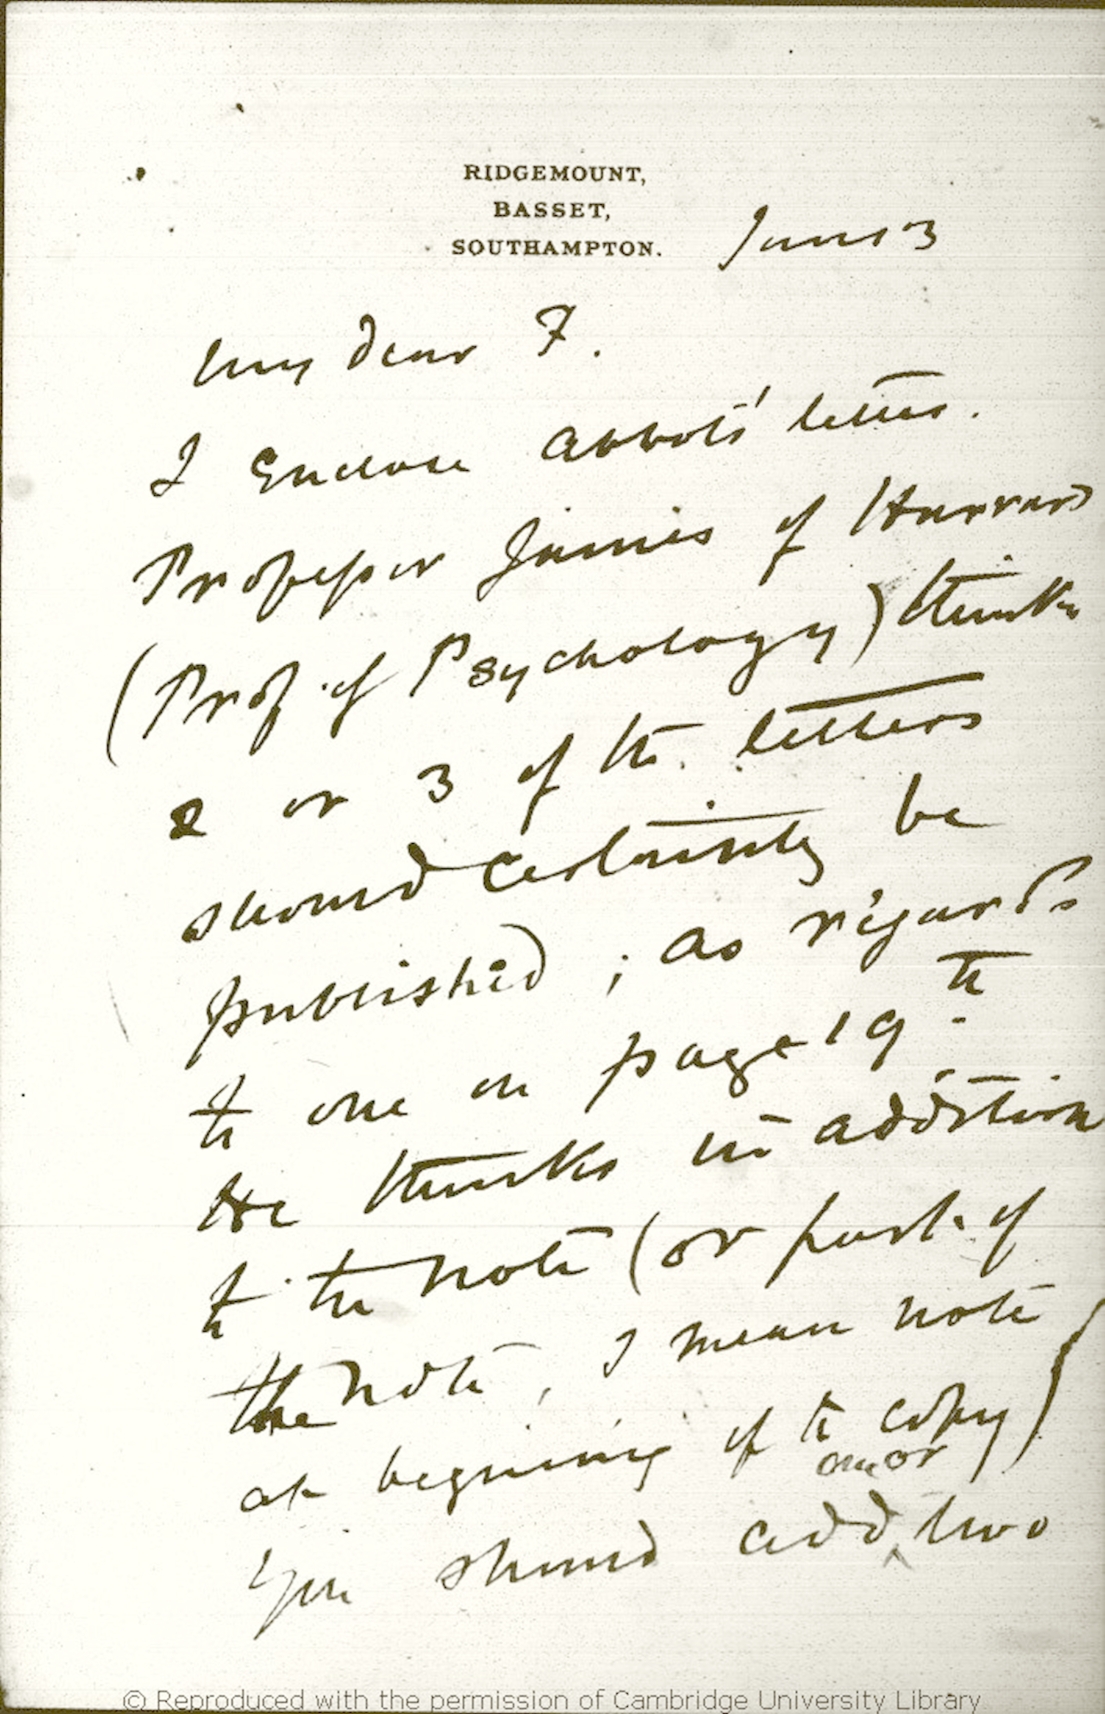 RIDGEMOUNT,
BASSET,
SOUTHAMPTON.
June 3
My dear F.
I enclose Abbots' letter.
Professor James of Harvard
(Prof. of Psychology) thinks
2 or 3 of the letters
should certainly be
published; as regards
to one on page 19 th
He thinks in addition
to the note (or part of
the note, I mean note
at begining of the copy)
one or
you should add ^ two
© Reproduced with the permission of Cambridge University Library